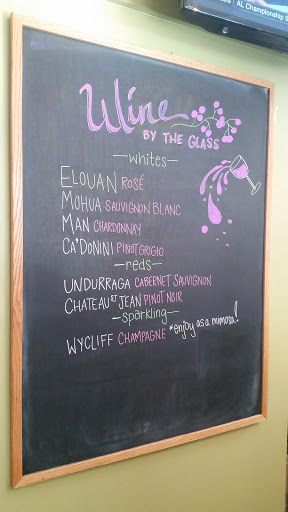 AL Championship S
Wine
BY THE GLASS
—whites—
ELOUAN ROSÉ
MOHUA SAUVIGNON BLANC
MAN CHARDONNAY
CA'DONINI PINOT GRIGIO
—reds—
UNDURRAGA CABERNET SAUVIGNON
CHATEAU ST JEAN PINOT NOIR
—sparkling—
WYCLIFF CHAMPAGNE *enjoy as a mimosa!